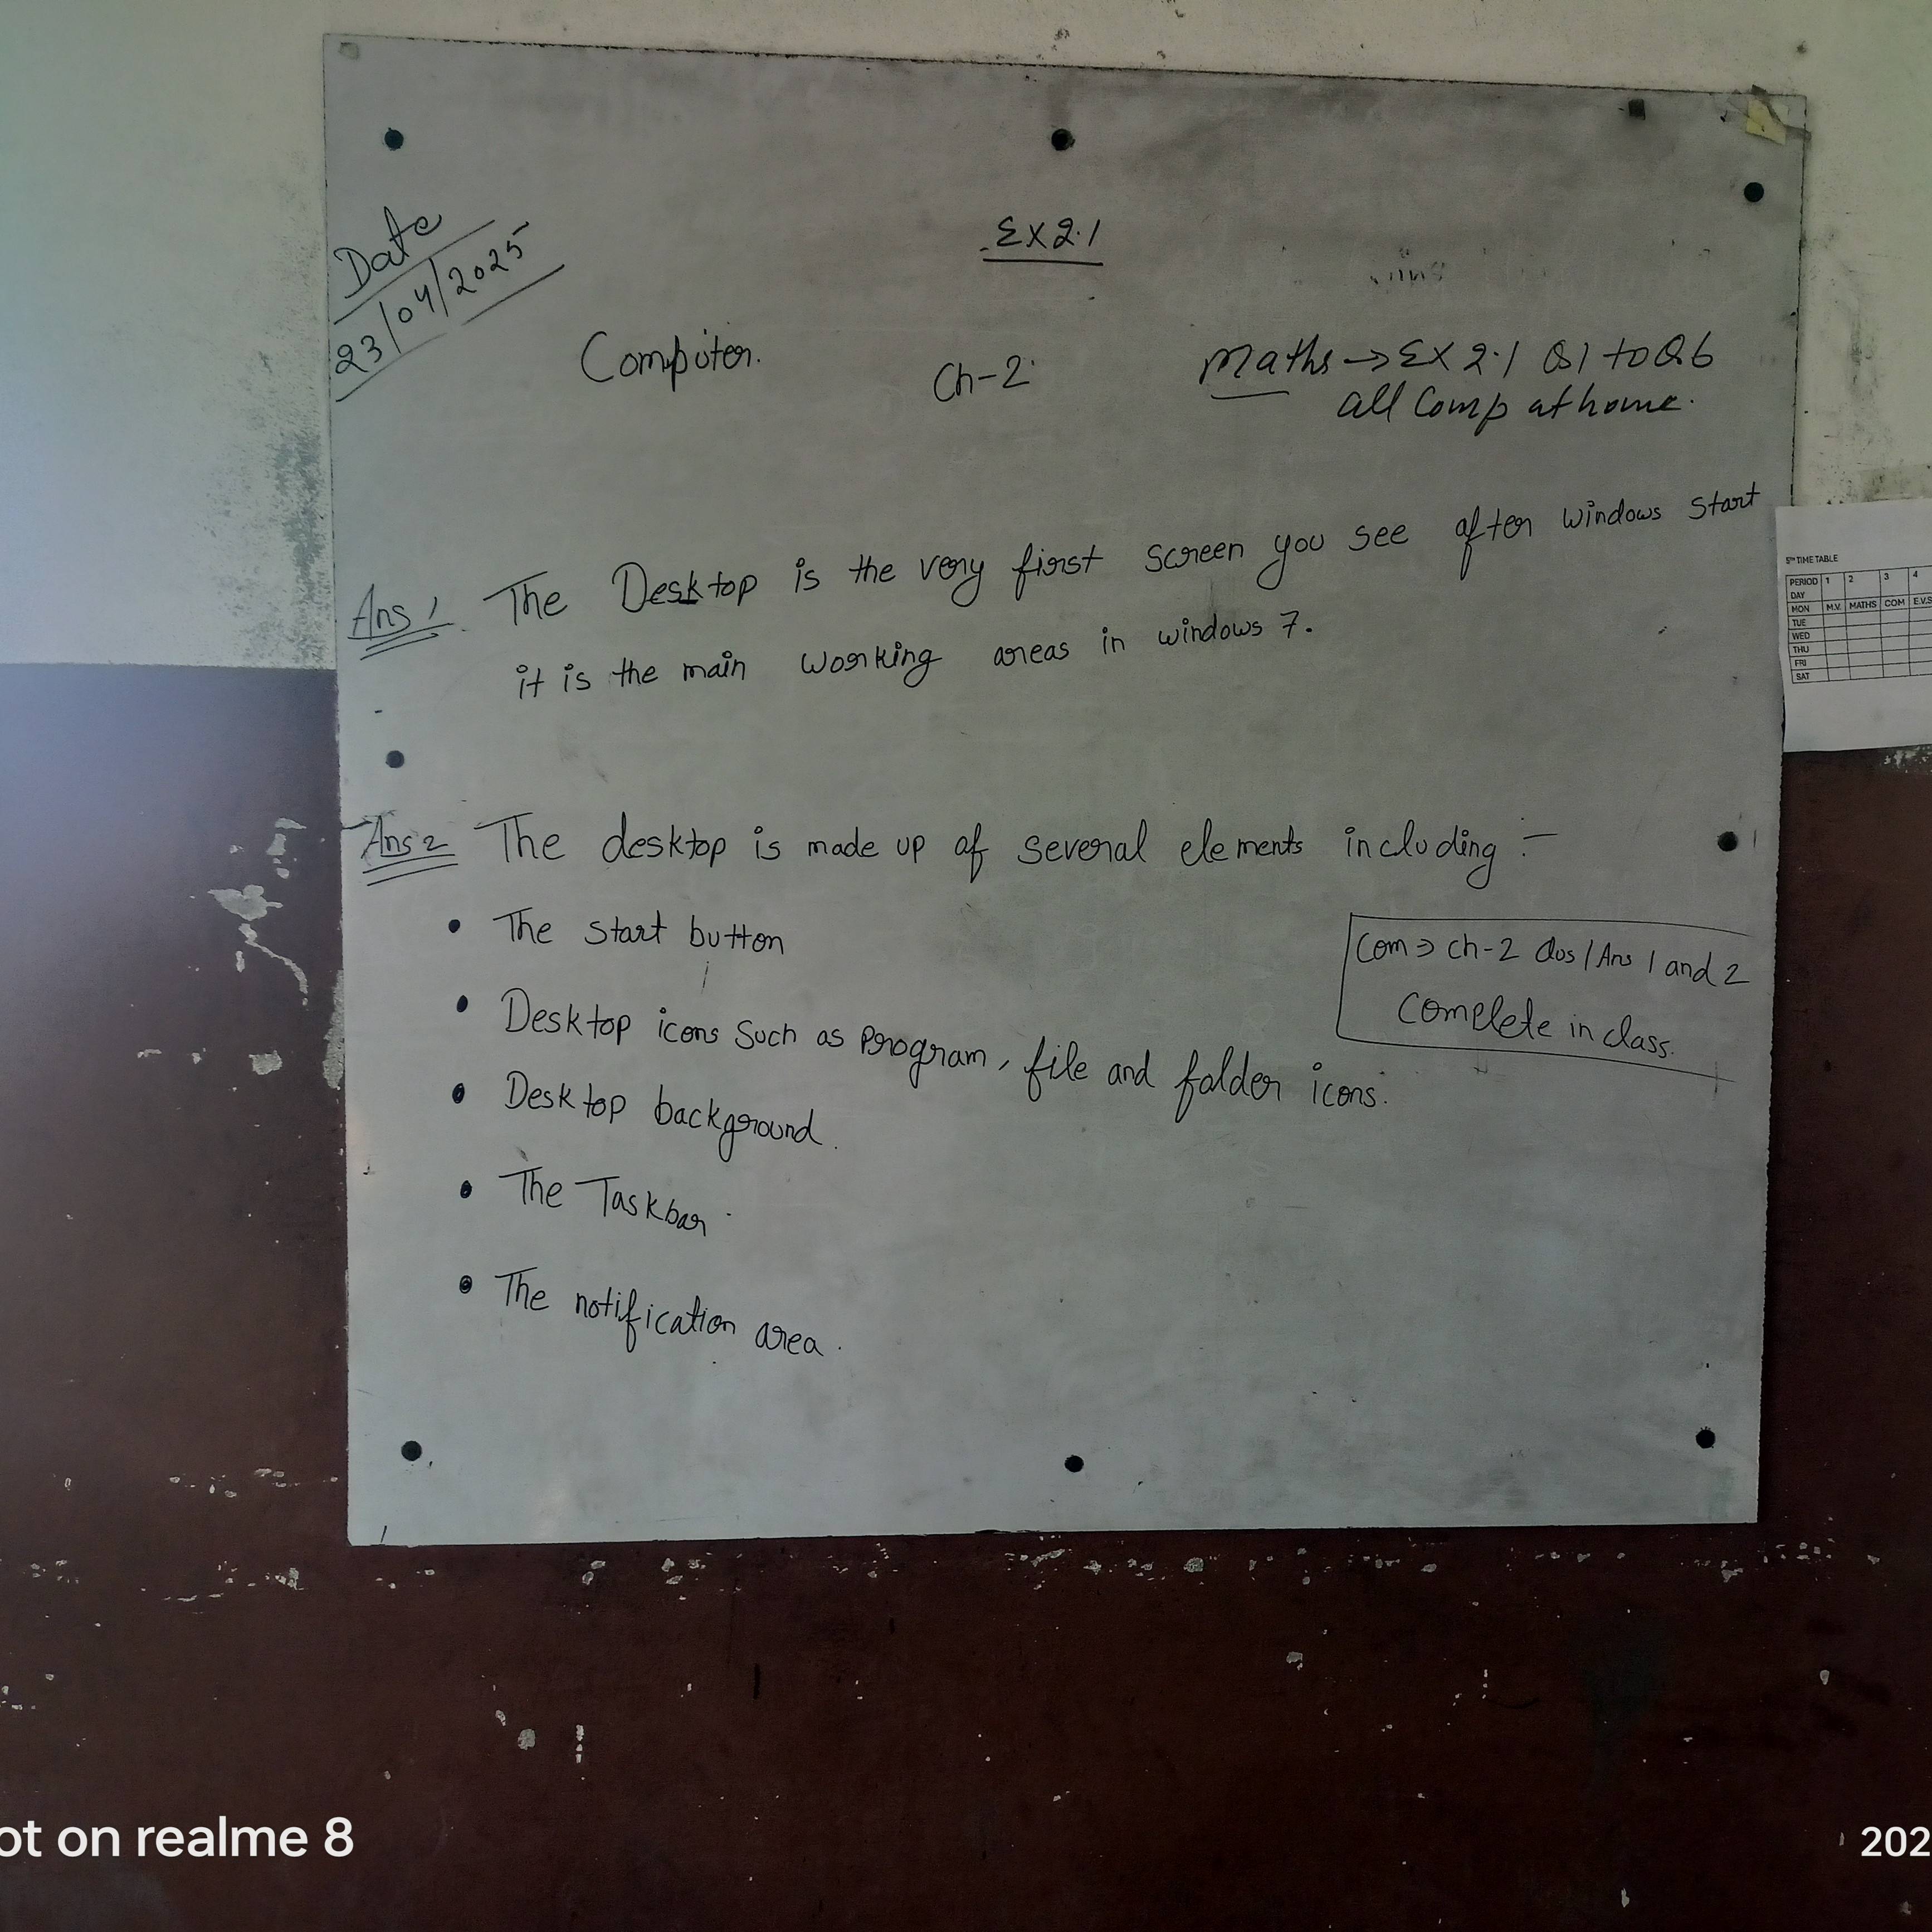 Date
23/04/2025
Ex 2.1
Computer.
Ch-2
Maths → Ex 2.1 Q1 to Q6
all Comp at home.
Ans 1 The Desktop is the very first screen you see after windows start
it is the main working areas in windows 7.
Ans 2 The desktop is made up of several elements including :-
• The start button
• Desktop icons such as Program, file and folder icons.
• Desktop background.
• The Taskbar
• The notification area.
Com ⇒ ch-2 Qus/Ans 1 and 2
Complete in class.
5TH TIME TABLE
PERIOD 1 2 3 4
DAY
MON M.V. MATHS COM E.V.S
TUE
WED
THU
FRI
SAT
ot on realme 8
202